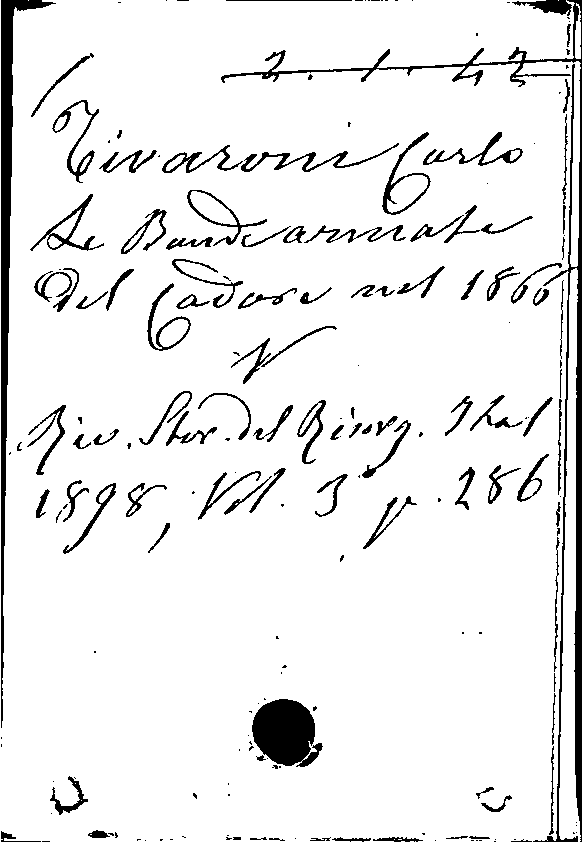 2. 1. 42
Tivaroni Carlo
Le Bande armate
del Cadore nel 1866
V
Riv. Stor. del Risorg. Ital
1898, Vol. 3° p. 286